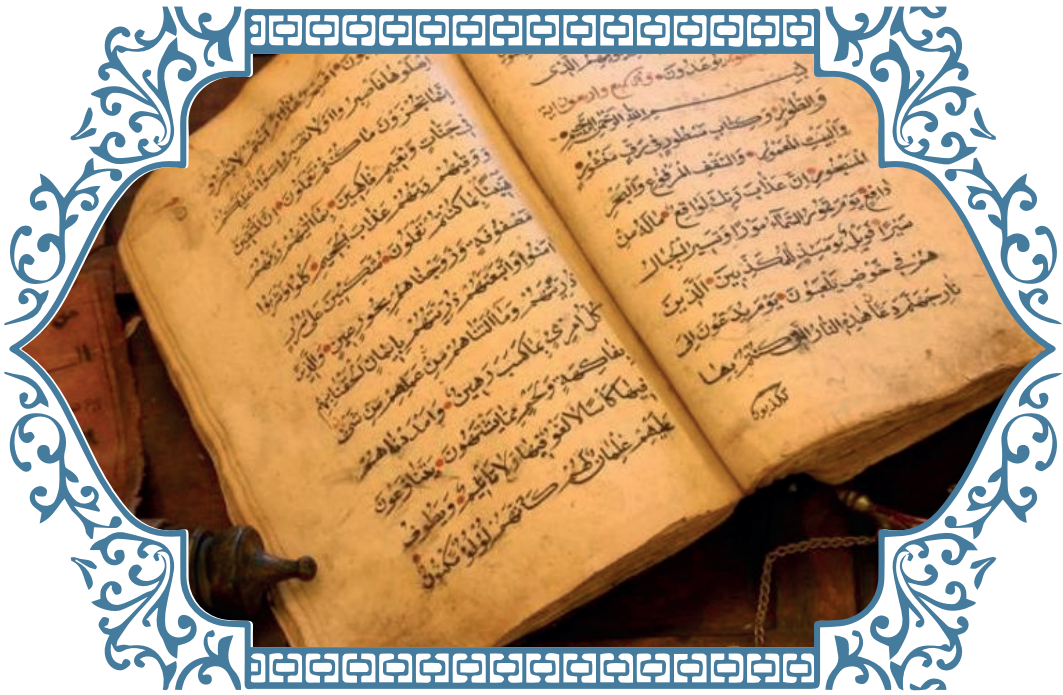 الذي
يوعدون
بسم الله الرحمن الرحيم
والطور وكتاب مسطور في رق منشور
والبيت المعمور والسقف المرفوع والبحر
المسجور ان عذاب ربك لواقع ما له من
دافع يوم تمور السماء مورا وتسير الجبال
سيرا فويل يومئذ للمكذبين الذين
هم في خوض يلعبون يوم يدعون الى
نار جهنم دعا هذه النار التي كنتم بها
تكذبون
اصلوها فاصبروا او لا تصبروا سواء عليكم
انما تجزون ما كنتم تعملون ان المتقين
في جنات ونعيم فاكهين بما اتيهم ربهم
ووقيهم ربهم عذاب الجحيم كلوا واشربوا
هنيئا بما كنتم تعملون متكئين على سرر
مصفوفة وزوجناهم بحور عين والذين
امنوا واتبعتهم ذريتهم بايمان الحقنا بهم
ذريتهم وما التناهم من عملهم من شئ
كل امرئ بما كسب رهين وامددناهم
بفاكهة ولحم مما يشتهون يتنازعون
فيها كاسا لا لغو فيها ولا تاثيم ويطوف
عليهم غلمان لهم كانهم لؤلؤ مكنون